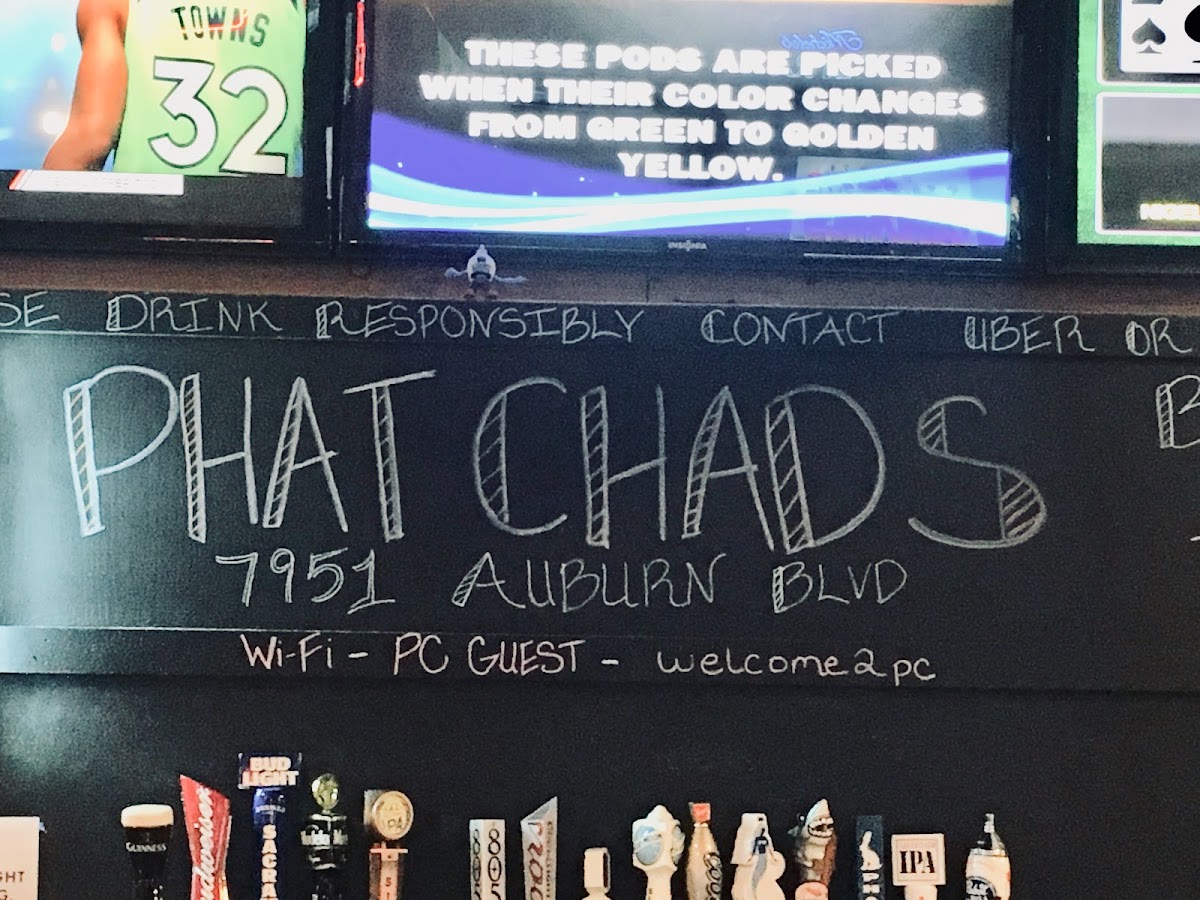 TOWNS
32
THESE PODS ARE PICKED
WHEN THEIR COLOR CHANGES
FROM GREEN TO GOLDEN
YELLOW.
INSIGNIA
SE DRINK RESPONSIBLY CONTACT UBER OR
PHAT CHADS
7951 AUBURN BLVD
Wi-Fi - PC GUEST - welcome2pc
BUD
LIGHT
SACRA
GUINNESS
Budweiser
805
805
Coo
IPA
IPA
GHT